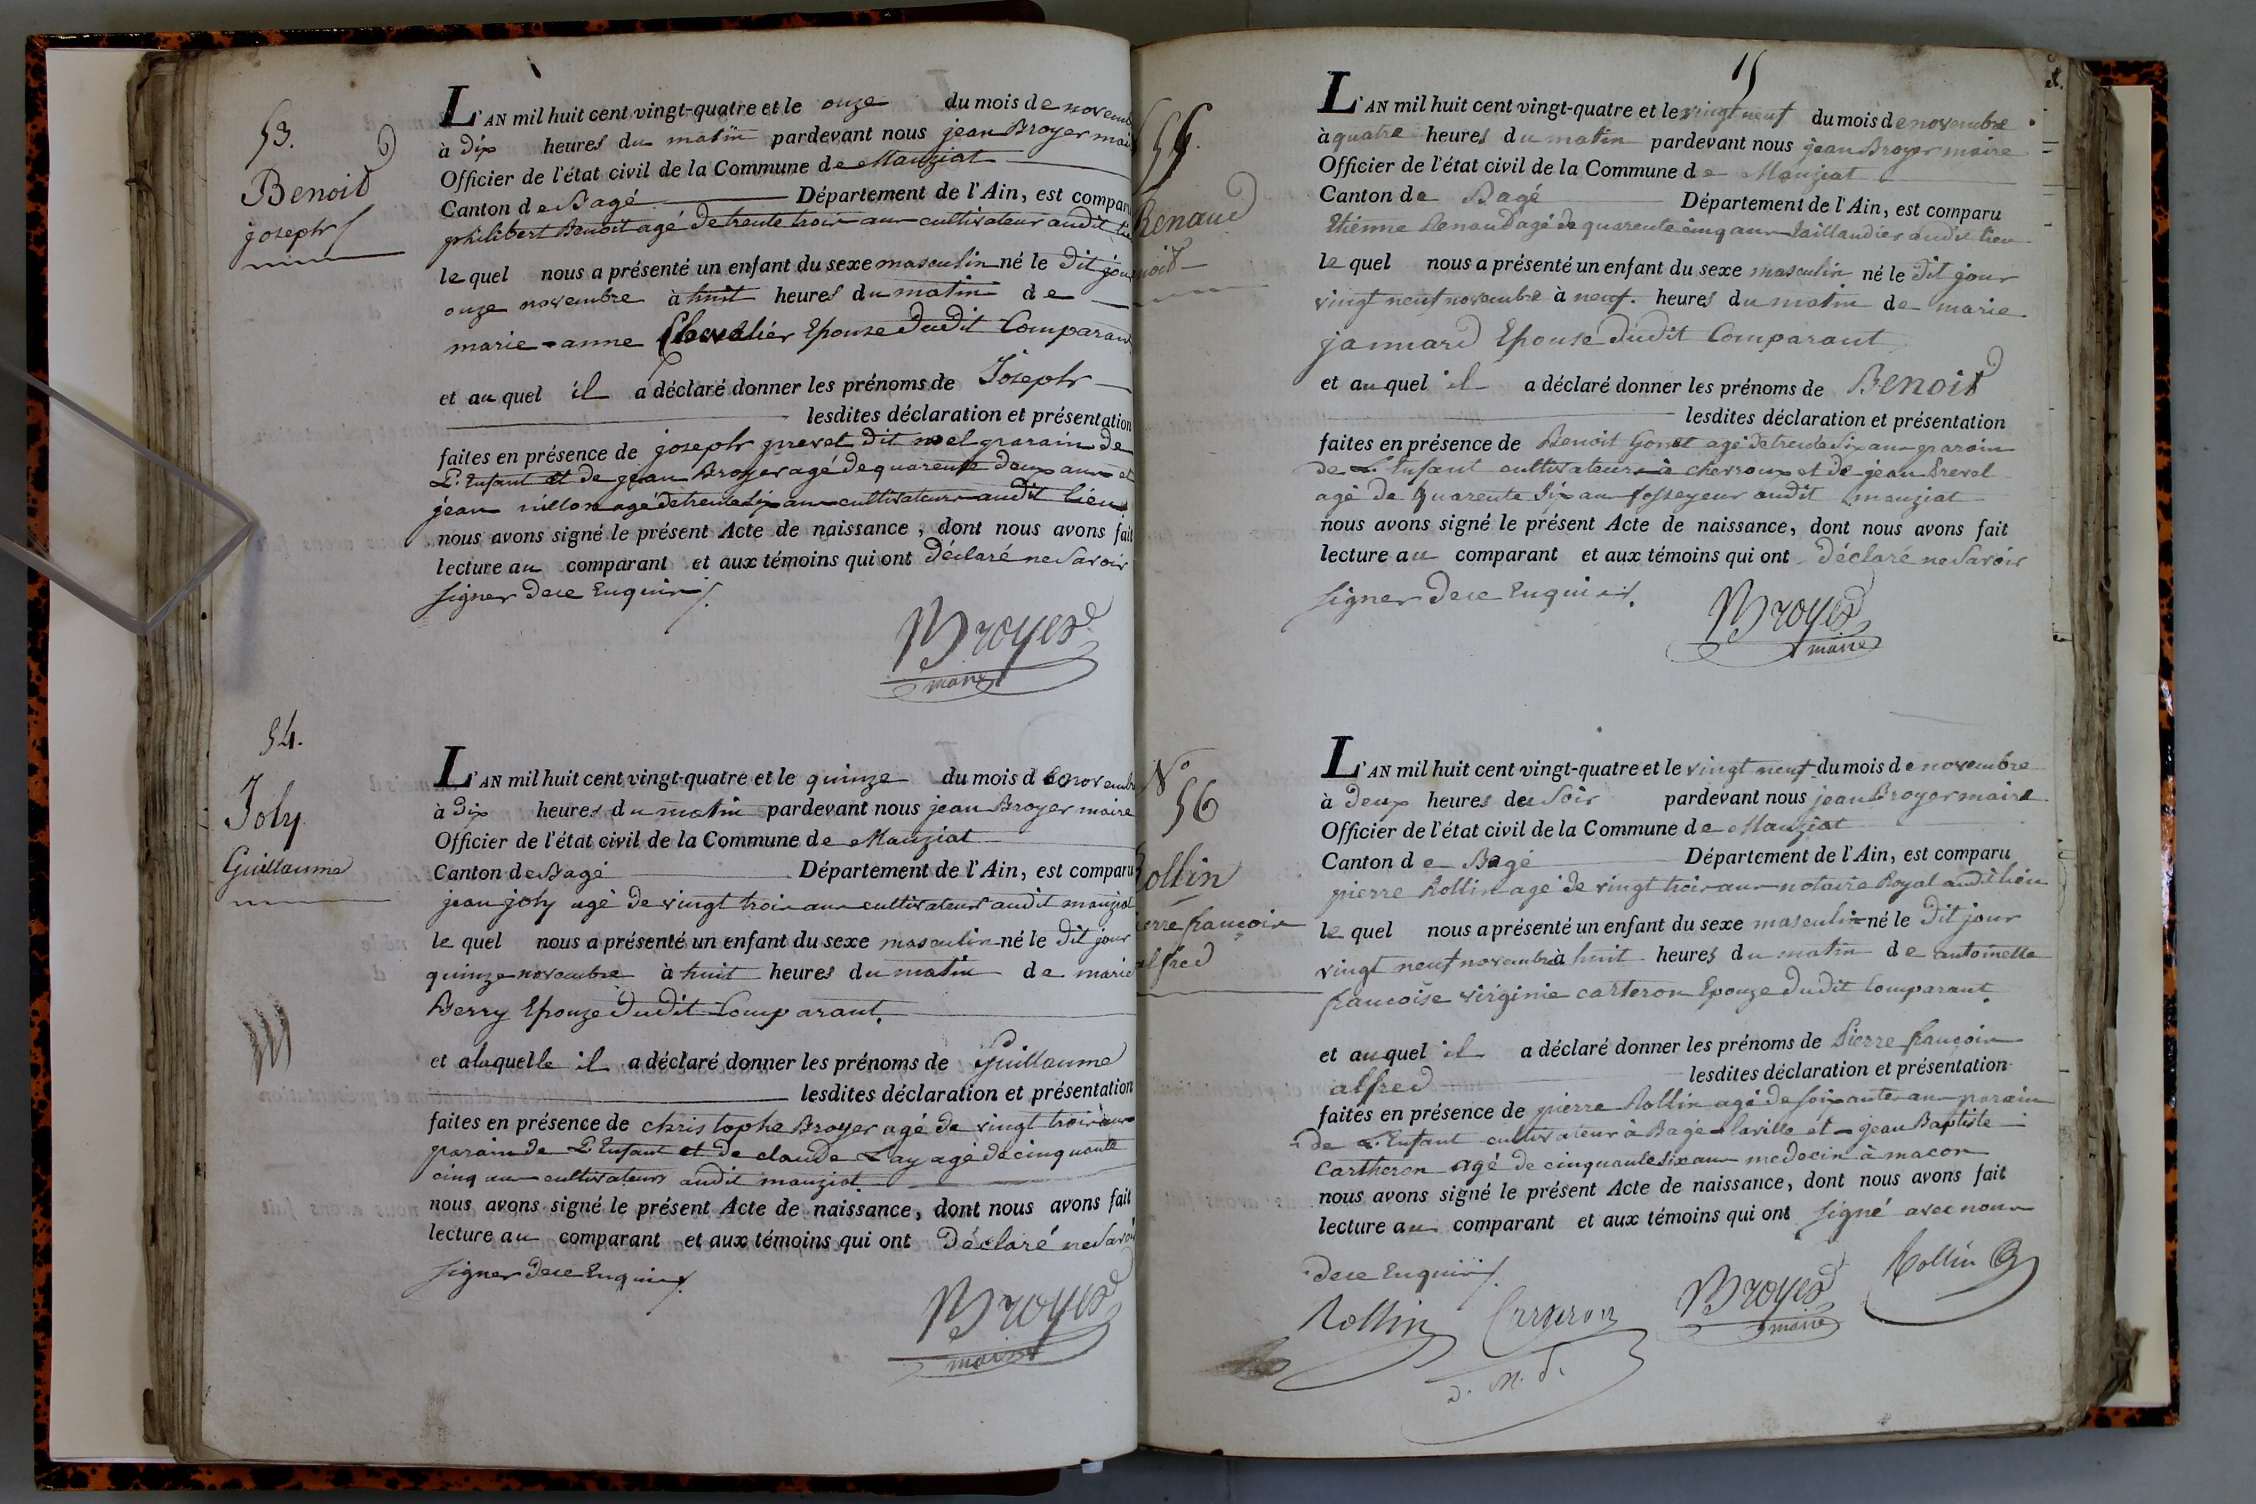 53.
Benoit
joseph
L'AN mil huit cent vingt-quatre et le onze du mois de novemb
à dix heures du matin pardevant nous jean Broyer mai
Officier de l'état civil de la Commune de Manziat
Canton de Bagé Département de l'Ain, est comparu
philibert Benoit agé de trente trois ans cultivateur audit lie
le quel nous a présenté un enfant du sexe masculin né le dit jour
onze novembre à huit heures du matin de
marie-anne Chevalier Epouse dudit Comparant
et au quel il a déclaré donner les prénoms de Joseph
lesdites déclaration et présentation
faites en présence de joseph prevet dit noel parain de
L'Enfant et de jean Broyer agé de quarente deux ans et
jean nillon agé de trente six ans cultivateurs audit lieu
nous avons signé le présent Acte de naissance, dont nous avons fait
lecture au comparant et aux témoins qui ont déclaré ne Savoir
signer de ce Enquis
Broyer
maire
54.
Joly
Guillaume
L'AN mil huit cent vingt-quatre et le quinze du mois de novembre
à dix heures du matin pardevant nous jean Broyer maire
Officier de l'état civil de la Commune de Manziat
Canton de Bagé Département de l'Ain, est comparu
jean joly agé de vingt trois ans cultivateur audit manziat
le quel nous a présenté un enfant du sexe masculin né le dit jour
quinze novembre à huit heures du matin de marie
Berry Epouze dudit Comparant.
et alaquelle il a déclaré donner les prénoms de Guillaume
lesdites déclaration et présentation
faites en présence de christophe Broyer agé de vingt trois ans
parain de L'Enfant et de claude Lay agé de cinquante
cinq ans cultivateurs audit manziat
nous avons signé le présent Acte de naissance, dont nous avons fait
lecture au comparant et aux témoins qui ont Déclaré ne Savoi
signer de ce Enquis
Broyer
maire
15
55.
Renaud
noit
L'AN mil huit cent vingt-quatre et le vingt neuf du mois de novembre
à quatre heures du matin pardevant nous jean Broyer maire
Officier de l'état civil de la Commune de Manziat
Canton de Bagé Département de l'Ain, est comparu
Etienne Renaud agé de quarente cinq ans Taillandier audit lieu
le quel nous a présenté un enfant du sexe masculin né le dit jour
vingt neuf novembre à neuf heures du matin de marie
jannard Epouse dudit Comparant
et au quel il a déclaré donner les prénoms de Benoit
lesdites déclaration et présentation
faites en présence de Benoit Gonet agé de trente six ans parain
de L'Enfant cultivateur à chevroux et de jean Preval
agé de quarente six ans fosseyeur audit manziat
nous avons signé le présent Acte de naissance, dont nous avons fait
lecture au comparant et aux témoins qui ont déclaré ne Savoir
signer de ce Enquis.
Broyer
maire
No
56
Rollin
ierre françois
alfred
L'AN mil huit cent vingt-quatre et le vingt neuf du mois de novembre
à deux heures du Soir pardevant nous jean Broyer maire
Officier de l'état civil de la Commune de Manziat
Canton de Bagé Département de l'Ain, est comparu
pierre Rollin agé de vingt trois ans notaire Royal audit lieu
le quel nous a présenté un enfant du sexe masculin né le dit jour
vingt neuf novembre à huit heures du matin de antoinette
francoise virginie carteron Epouze dudit Comparant
et au quel il a déclaré donner les prénoms de Pierre françois
alfred lesdites déclaration et présentation
faites en présence de pierre Rollin agé de soixante ans parain
de L'Enfant cultivateur à Bagé-laville et jean Baptiste
Cartheron agé de cinquante six ans medecin à macon
nous avons signé le présent Acte de naissance, dont nous avons fait
lecture au comparant et aux témoins qui ont signé avec nous
de ce Enquis
Rollin
Broyer
maire
Rollin
Carteron
d. m.